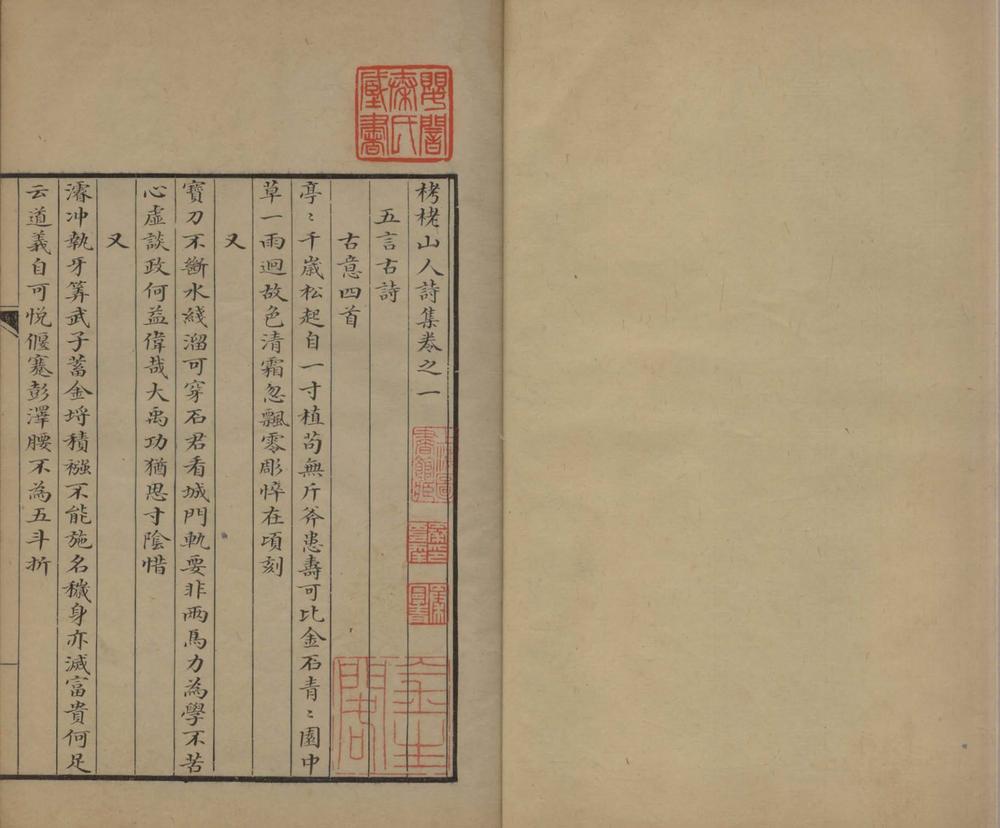 栲栳山人詩集卷之一
五言古詩
古意四首
亭〻千歲松起自一寸植苟無斤斧患壽可比金石青〻園中
草一雨迴故色清霜忽飄零彫悴在頃刻
又
寶刀不斷水綫溜可穿石君看城門軌要非兩馬力為學不苦
心虛談政何益偉哉大禹功猶思寸陰惜
又
濬冲執牙筭武子蓄金埒積襁不能施名穢身亦滅富貴何足
云道義自可悅偃蹇彭澤腰不為五斗折
秦氏
書